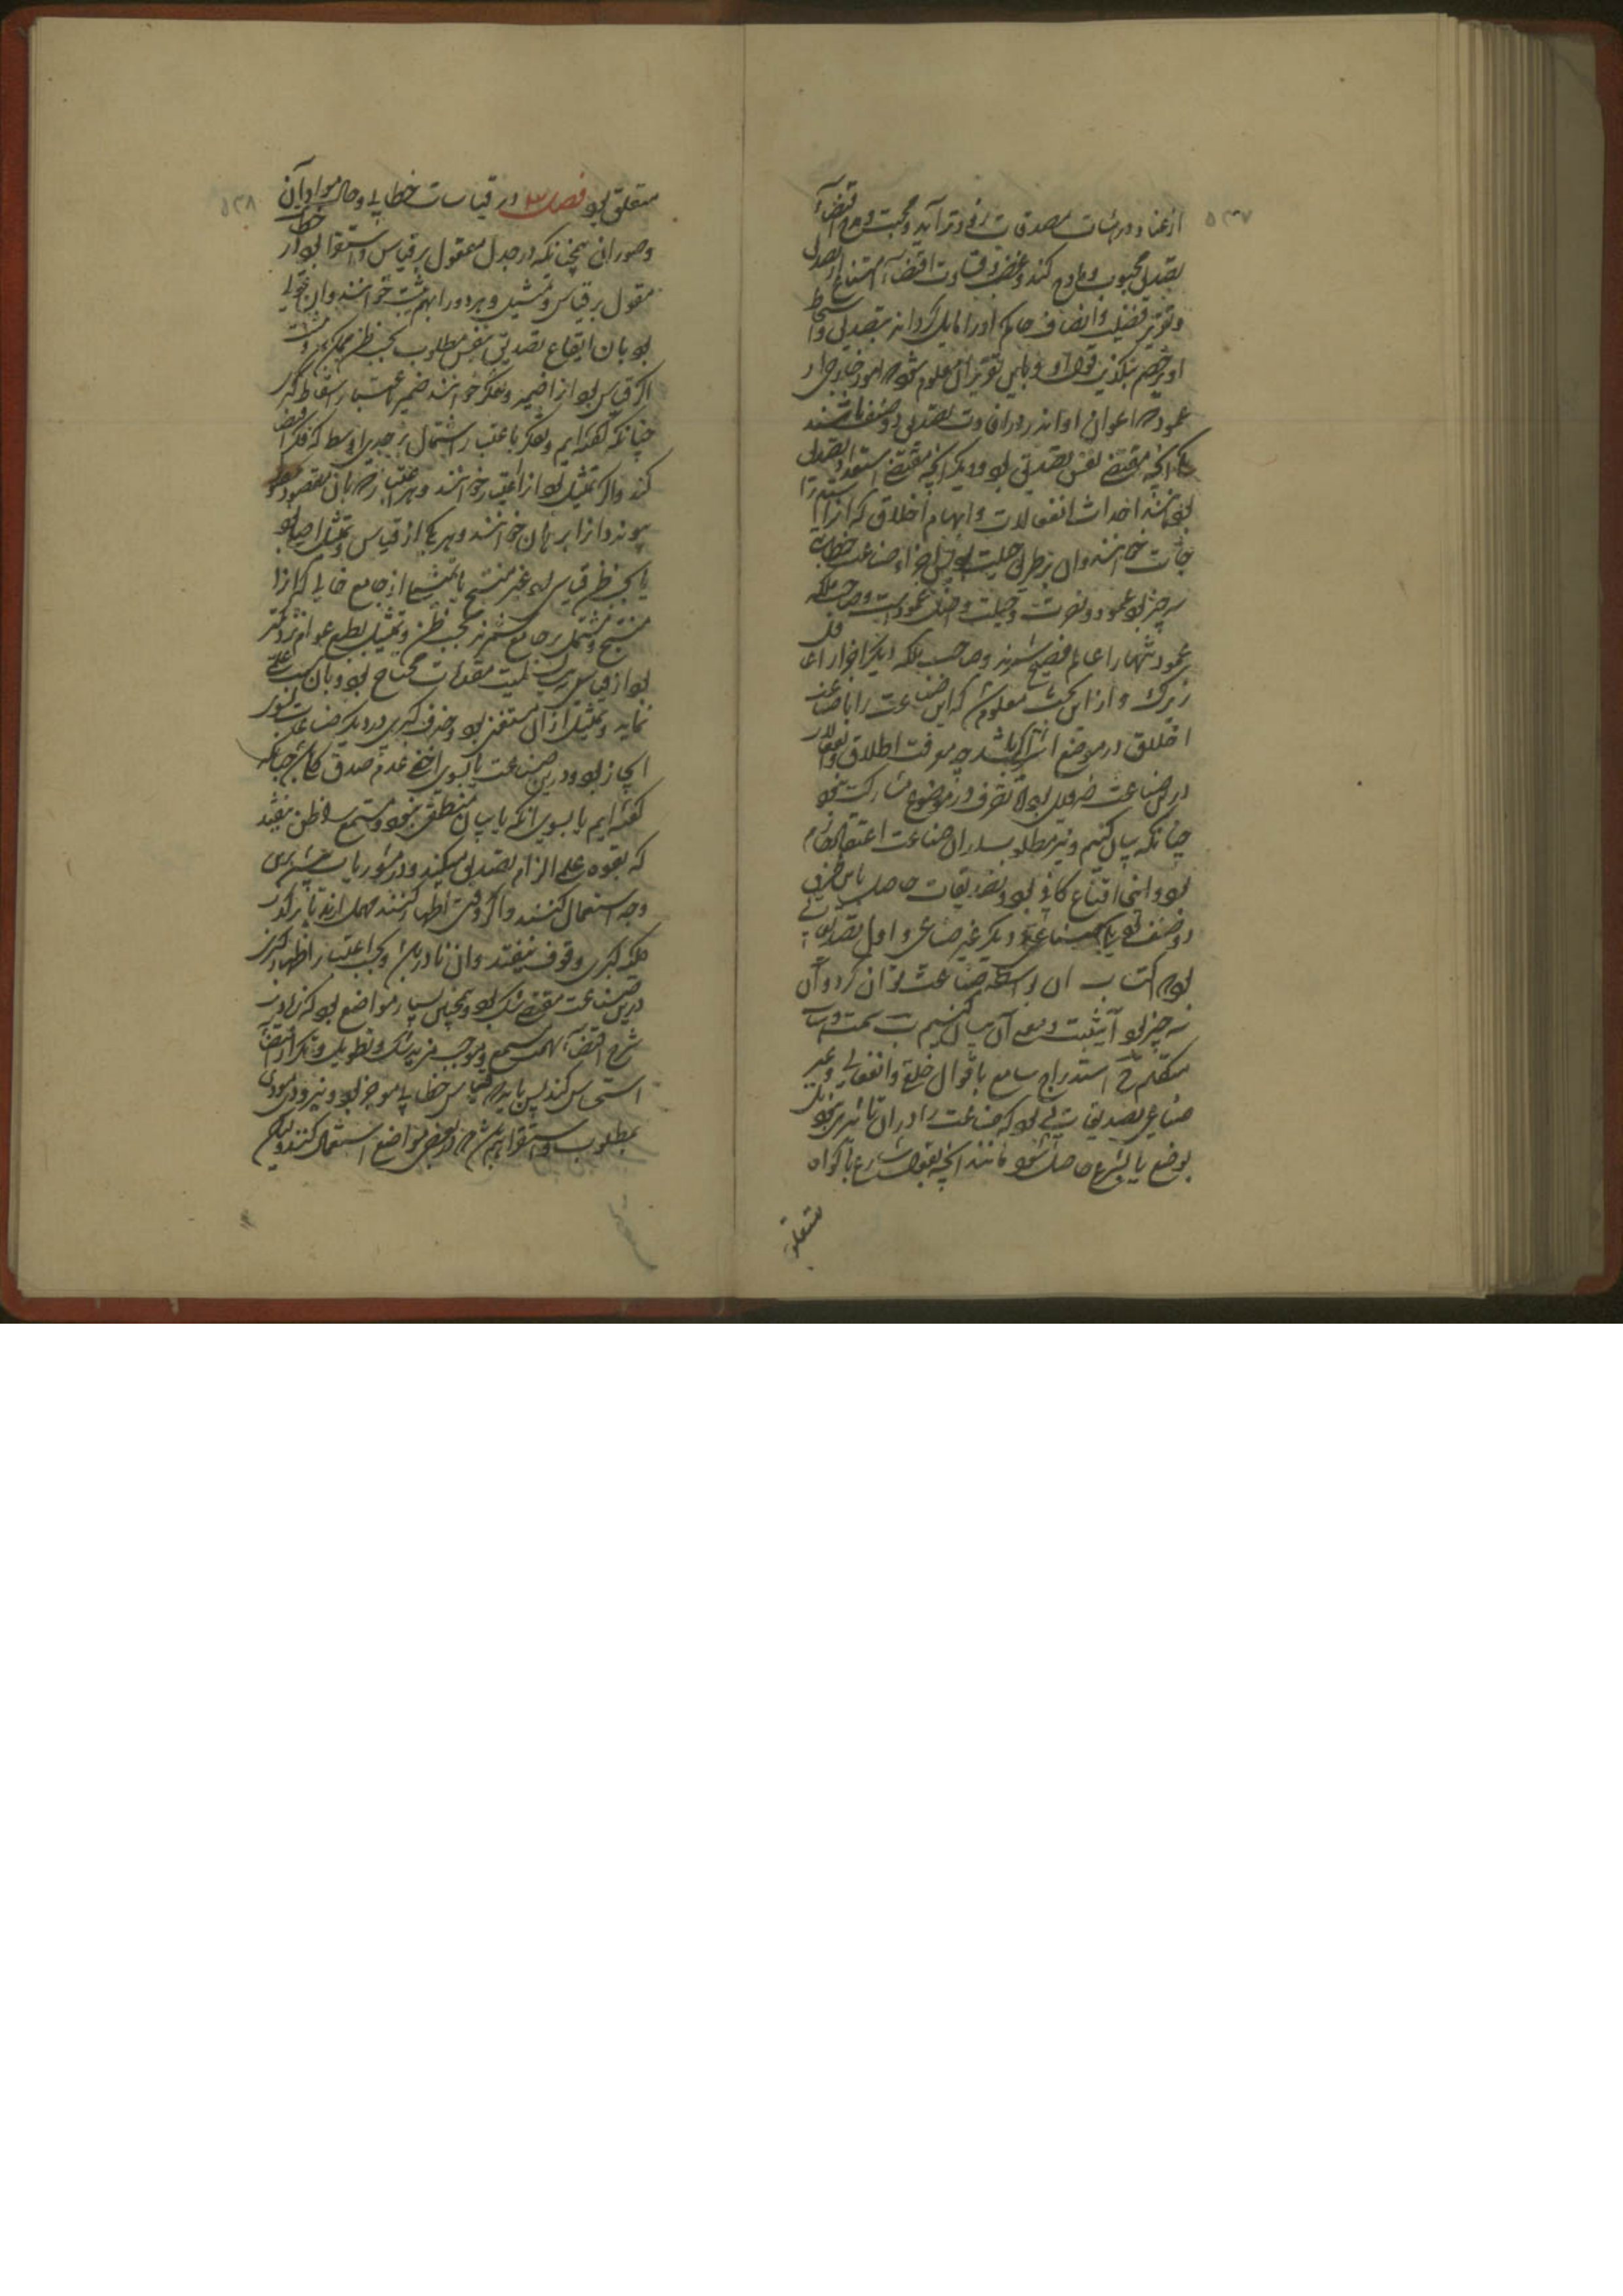 ۵۳۷
از عناد و در اثبات مصدقات زود درآید و محبت و مدح اقتضاء
تصدیق محبوب و مادح کند و بغض و قساوت اقتضاء امتناع از تصدیق
و تقریر فضیلت و انصاف حاکم او را مایل گرداند بتصدیق و اسخاط
او بر خصم بتکذیب قول او و باین تقریر معلوم شود که امور خارجی از
عمود که اعوان او اند در افادت تصدیق دو صنف باشند
یکی آنچه مقتضی نفس تصدیق بود و دیگر آنچه مقتضی استعداد تصدیق
بود مانند احداث انفعالات و ایهام اخلاق که آنرا استدراجات
خوانند و آن بر طریق حیلت بود پس اجزاء صناعت خطابت
سه چیز بود عمود و نصرت و حیلت و اصل عمودست و صاحب ملکه
عمود تنها را عالم فصیح شمرند و صاحب ملکه دیگر اجزا را عاقل
زیرک و از این بحث معلوم شد که این صناعت را با صناعت
اخلاق در موضع اشتراک باشد چه معرفت اخلاق و انفعالات
در این صناعت ضروری بود تا تصرف در موضوع مشارکت بود
چنانکه بیان کنیم و نیز مطلوب در آن صناعت اعتقاد جازم
بود و اینجا اقناع کافی بود و تصدیقات حاصل باین طریق
دو صنف بود یکی صناعی و دیگر غیر صناعی و اول تصدیقاتی
بود که اکتساب آن بواسطه صناعت توان کرد و آن
سه چیز بود آ تثبیت و معنی آن بیان کنیم ب سمت و هیات
متکلم ج استدراج سامع باقوال خلقی و انفعالی و غیر
صناعی تصدیقاتی بود که صناعت را در آن تاثیری نبود بلک
بوضع یا بشرع حاصل شود مانند آنچه بقول شارع یا گواه
متعلق
۵۳۸
متعلق بود فصل ۳ در قیاسات خطابی و حال مواد آن
و صور آن همچنانکه در جدل معقول بر قیاس و استقرا بود در خطابت
معقول بر قیاس و تمثیل و هر دو را بهم تثبیت خوانند و آن قولی
بود بان ایقاع تصدیق بنفس مطلوب بحسب ظن ممکن و تثبیت
اگر قیاس بود آنرا ضمیر و تفکیر خوانند ضمیر باعتبار اسقاط کبری
چنانکه گفته ایم و تفکیر باعتبار اشتمال بر حدی اوسط که فکر اقتضاء
کند و اگر تمثیل بود آنرا اعتبار خوانند و هر اعتبار که بان مقصود
پیوندد آنرا برهان خوانند و هر یکی از قیاس و تمثیل اصلی بود
یا بحسب ظن قیاس بود غیر منتج یا تمثیلی از جامع خالی که آنرا
منتج و مشتمل بر جامع شمرند بحسب ظن و تمثیل بطبع عوام نزدیکتر
بود از قیاس بسبب آنک قیاس بمقدمات محتاج بود و بیان
نماید و تمثیل از آن مستغنی بود و حذف کبری در دیگر صناعات بسوی
ایجاز بود و درین صناعت یا بسوی اخفاء عدم صدق کلی چنانکه
گفته ایم یا بسوی آنکه با بیان منطقی نبود و مستمع را ظن نیفتد
که بقوه علم الزام تصدیق میکند و در مشوریات بیشتر برین
وجه استعمال کنند و اگر وقتی اظهار کنند مهمل ایراد کنند تا بر کذب
کلیه کبری وقوف نیفتد و آن نادر باشد و بحسب اغلب اظهار کبری
درین صناعت مقتضی شک بود و همچنین بسیار مواضع بود که زیادت
شرح اقتضاء تهمت مستمع و موجب مزید شک و تطویل و تکرار اقتضاء
استیحاش کند پس باید که قیاس خطابی موجز بود و نیز زود مودی
بمطلوب و استقرا هم شاید که در بعضی مواضع استعمال کنند